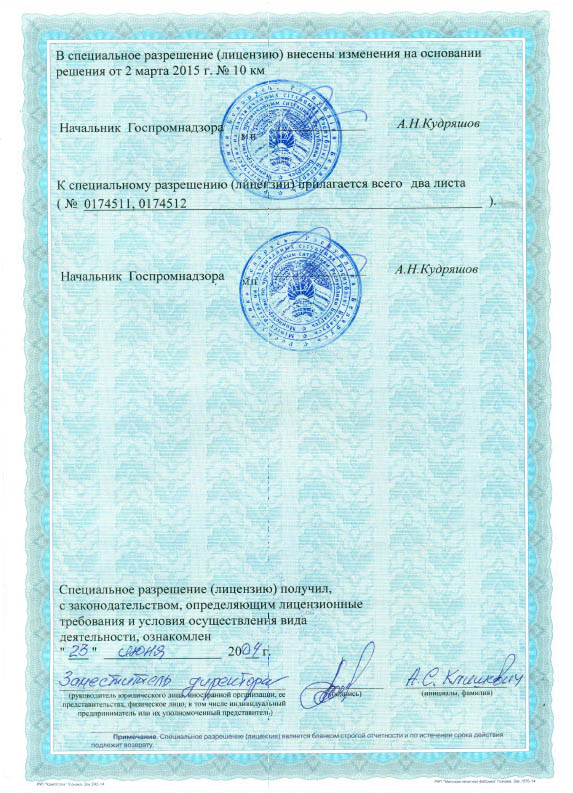 В специальное разрешение (лицензию) внесены изменения на основании
решения от 2 марта 2015 г. № 10 км
Начальник Госпромнадзора
А.Н.Кудряшов
К специальному разрешению (лицензии) прилагается всего два листа
( № 0174511, 0174512 ).
Начальник Госпромнадзора
А.Н.Кудряшов
Специальное разрешение (лицензию) получил,
с законодательством, определяющим лицензионные
требования и условия осуществления вида
деятельности, ознакомлен
" 23 " июня 2004 г.
Заместитель директора
А.С. Климкович
(руководитель юридического лица, иностранной организации, ее
представительства, физическое лицо, в том числе индивидуальный
предприниматель или их уполномоченный представитель)
(подпись)
(инициалы, фамилия)
Примечание. Специальное разрешение (лицензия) является бланком строгой отчетности и по истечении срока действия
подлежит возврату.